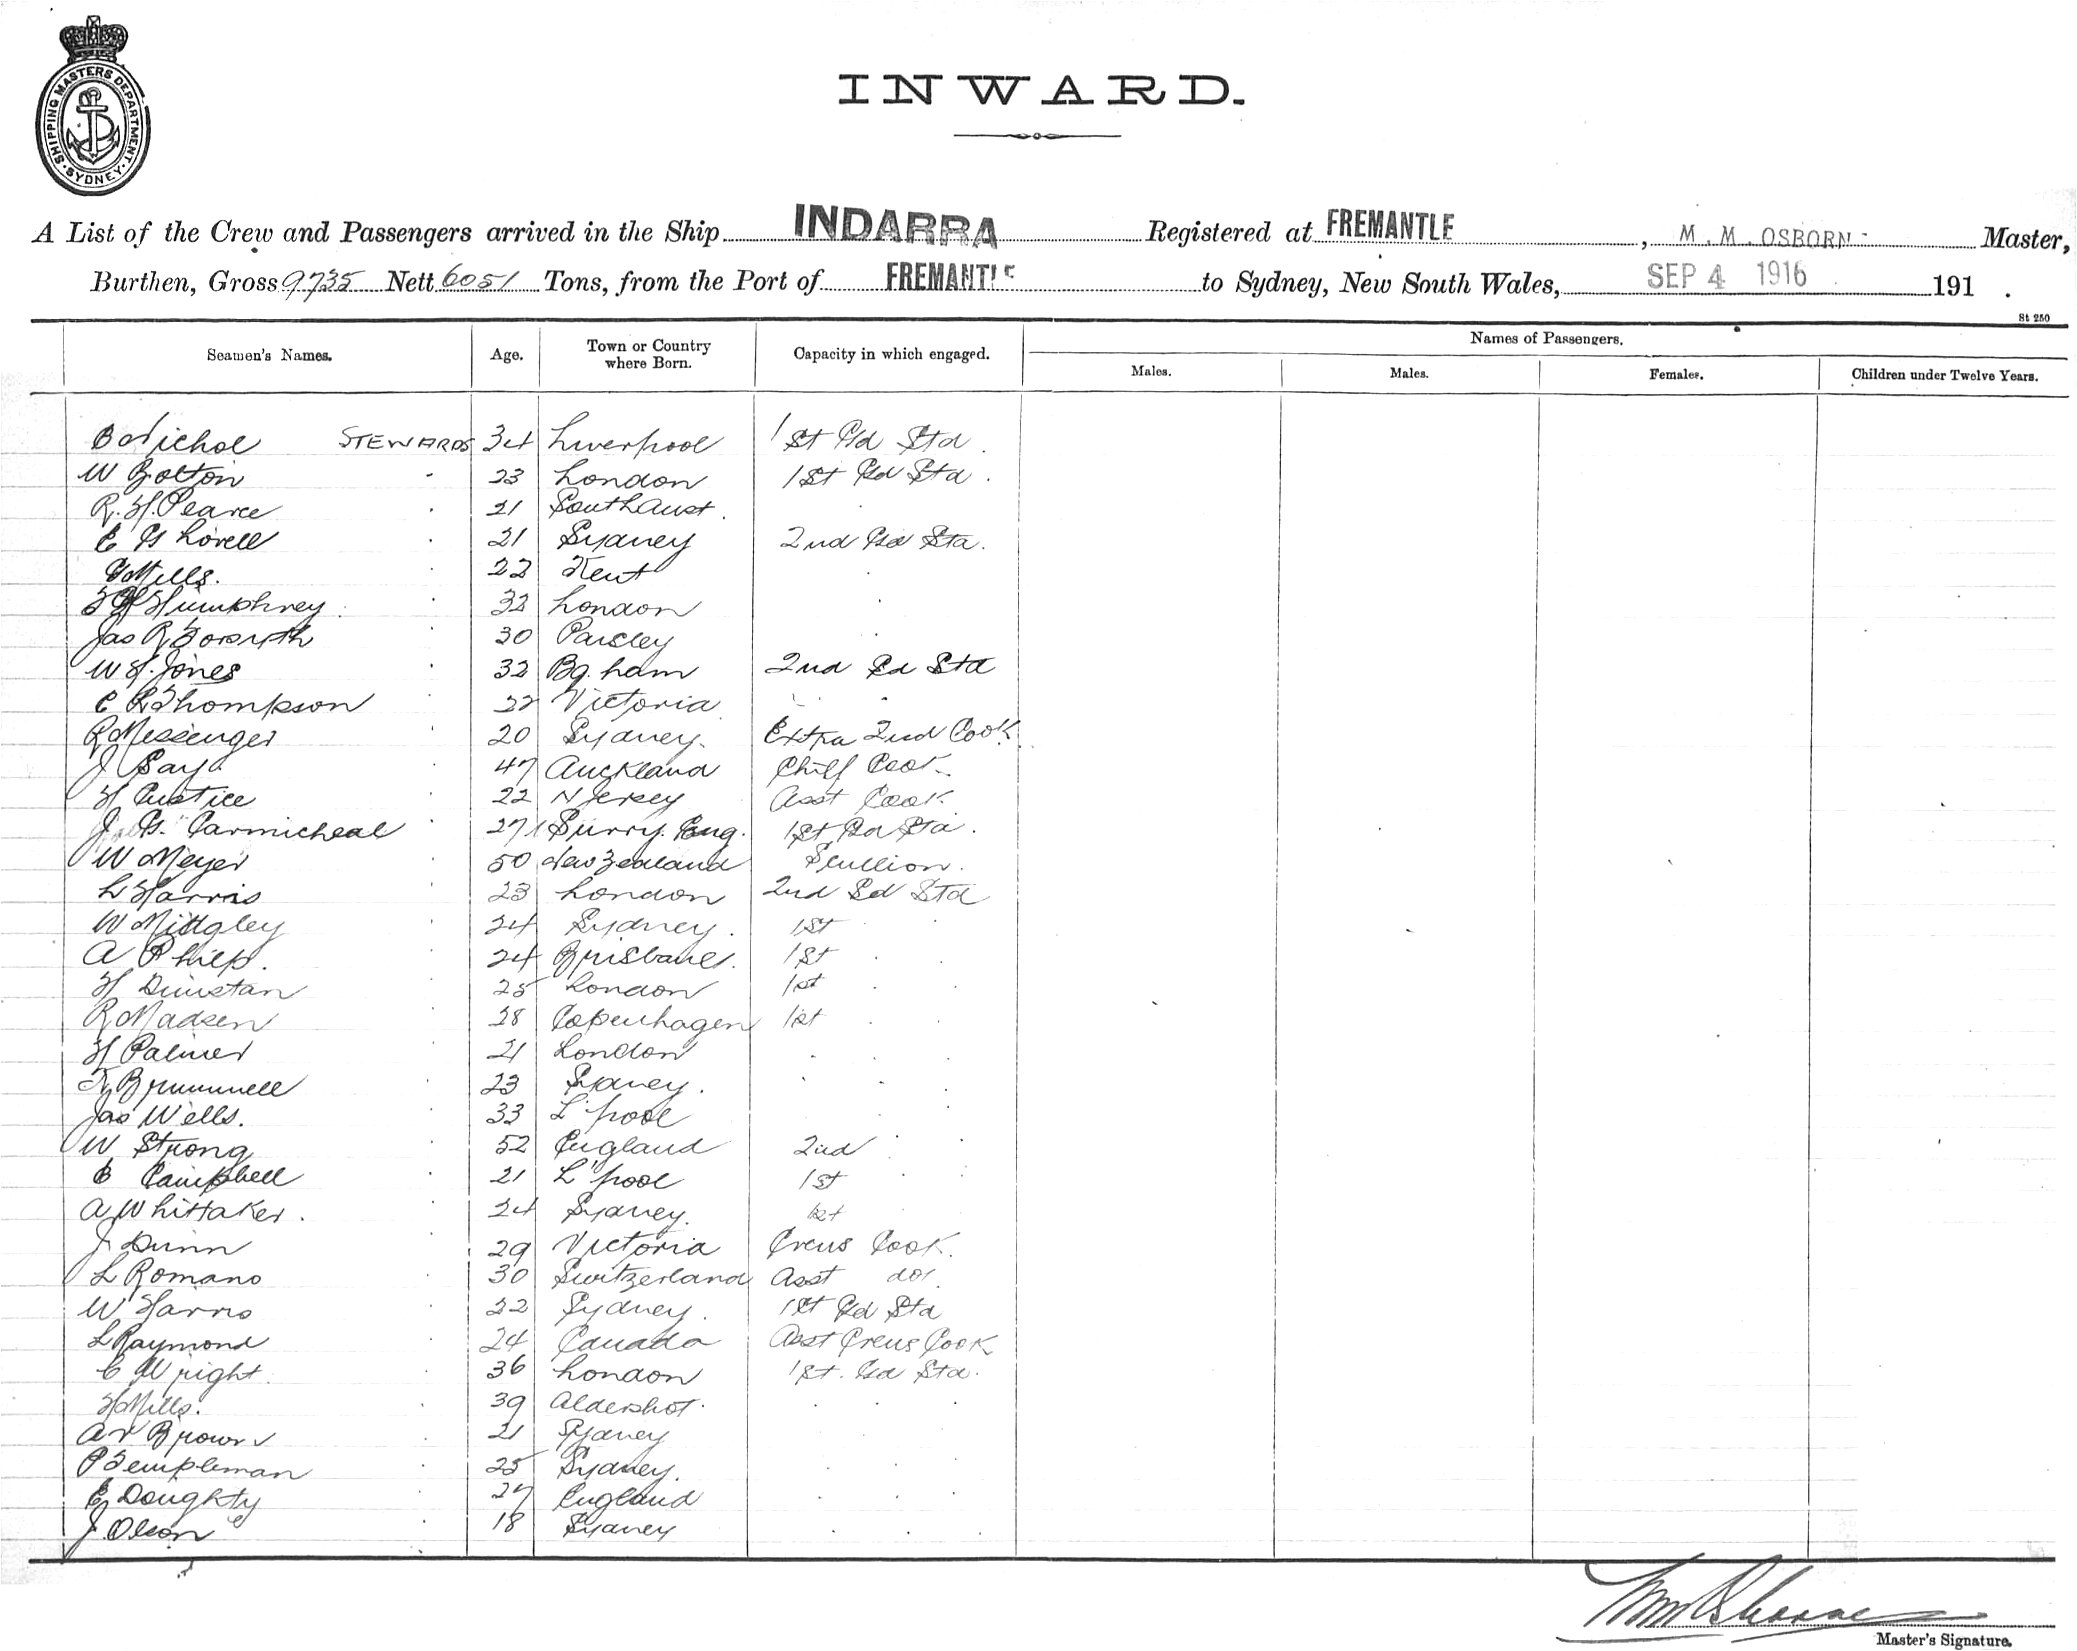 SHIPPING MASTERS DEPARTMENT. SYDNEY.
INWARD.
A List of the Crew and Passengers arrived in the Ship INDARRA Registered at FREMANTLE, M. M. OSBORN Master,
Burthen, Gross 9735 Nett 6051 Tons, from the Port of FREMANTLE to Sydney, New South Wales, SEP 4 1916 191 .
St 250
Seamen's Names. Age. Town or Country where Born. Capacity in which engaged. Names of Passengers.
Males. Males. Females. Children under Twelve Years.
B Nichol STEWARDS 34 Liverpool 1st Gd Std
W Bolton 23 London 1st Gd Std.
R. H. Pearce 21 South Aust.
E G Lovell 21 Sydney 2nd Gd Std.
G Mills. 22 Kent
Humphrey 32 London
Jas R Forsyth 30 Paisley
W H. Jones 32 Bg. ham 2nd Sd Std
C R Thompson 22 Victoria
R Messenger 20 Sydney. Extra 2nd Cook
J Gay. 47 Auckland Chief Cook
H Custice 22 N Jersey Asst Cook
J G. Carmicheal 27 Surry. Eng. 1st Gd Std.
W Meyer 50 New Zealand Scullion.
L Harris 23 London 2nd Sd Std
W Mittgley 24 Sydney. 1st
A Philp. 24 Brisbane. 1st
H Dunstan 25 London 1st
R Madsen 28 Copenhagen 1st
H Palmer 21 London
Brummell 23 Sydney.
Jas Wells. 33 L'pool
W Strong 52 England 2nd
C Campbell 21 L'pool 1st
A Whittaker. 24 Sydney. 1st
J Dunn 29 Victoria Crews Cook.
L Romano 30 Switzerland Asst do.
W Harris 22 Sydney. 1st Gd Std
L Raymond 24 Canada Asst Crews Cook
C Wright. 36 London 1st. Gd Std.
H Mills. 39 Aldershot.
A V Brown 21 Sydney
P Templeman 25 Sydney.
E Doughty 27 England
J. Olson 18 Sydney
Master's Signature.